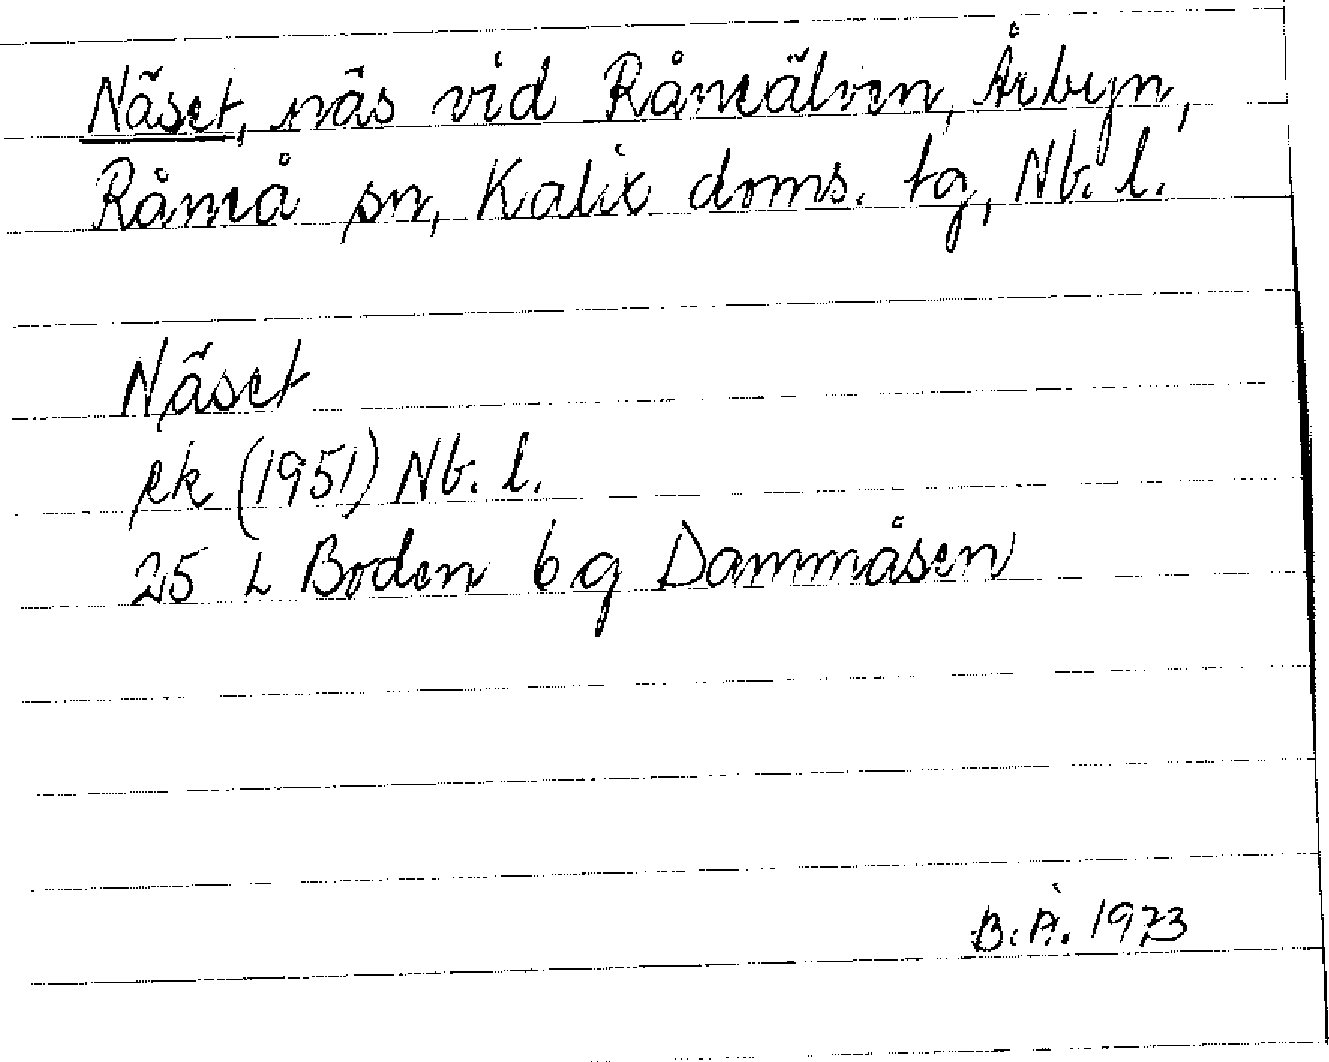 Näset, näs vid Råneälven, Årbyn,
Råneå sn, Kalix doms. tg, Nb. l.
Näset
ek (1951) Nb. l.
25 L Boden 6 g Dammåsen
B. Å. 1973